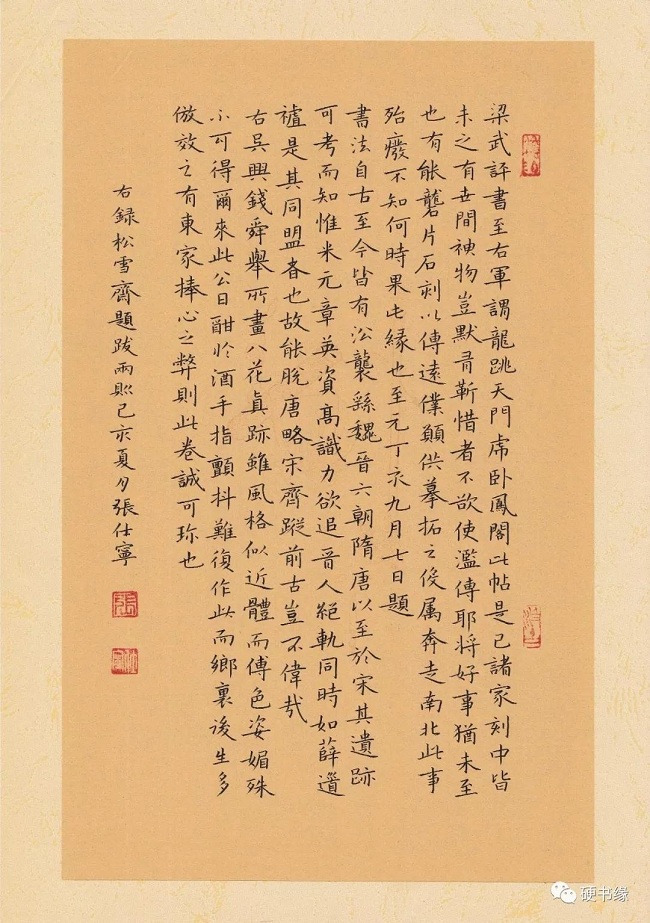 梁武評書至右軍謂龍跳天門虎卧鳳閣此帖是已諸家刻中皆
未之有世間神物豈默有靳惜者不欲使濫傳耶将好事猶未至
也有能礱片石刻以傳遠僕願供摹拓之役属奔走南北此事
殆廢不知何時果此縁也至元丁亥九月七日題
書法自古至今皆有沿襲繇魏晉六朝隋唐以至於宋其遺跡
可考而知惟米元章英資髙識力欲追晉人絕軌同時如薛道
𧝬是其同盟者也故能脫唐略宋齊蹤前古豈不偉哉
右吳興錢舜舉所畫八花真跡雖風格似近體而傅色姿媚殊
不可得爾來此公日酣於酒手指顫抖難復作此而鄉裏後生多
倣效之有東家捧心之弊則此卷誠可珍也
右録松雪齋題跋兩則己亥夏月張仕寧
硬书缘